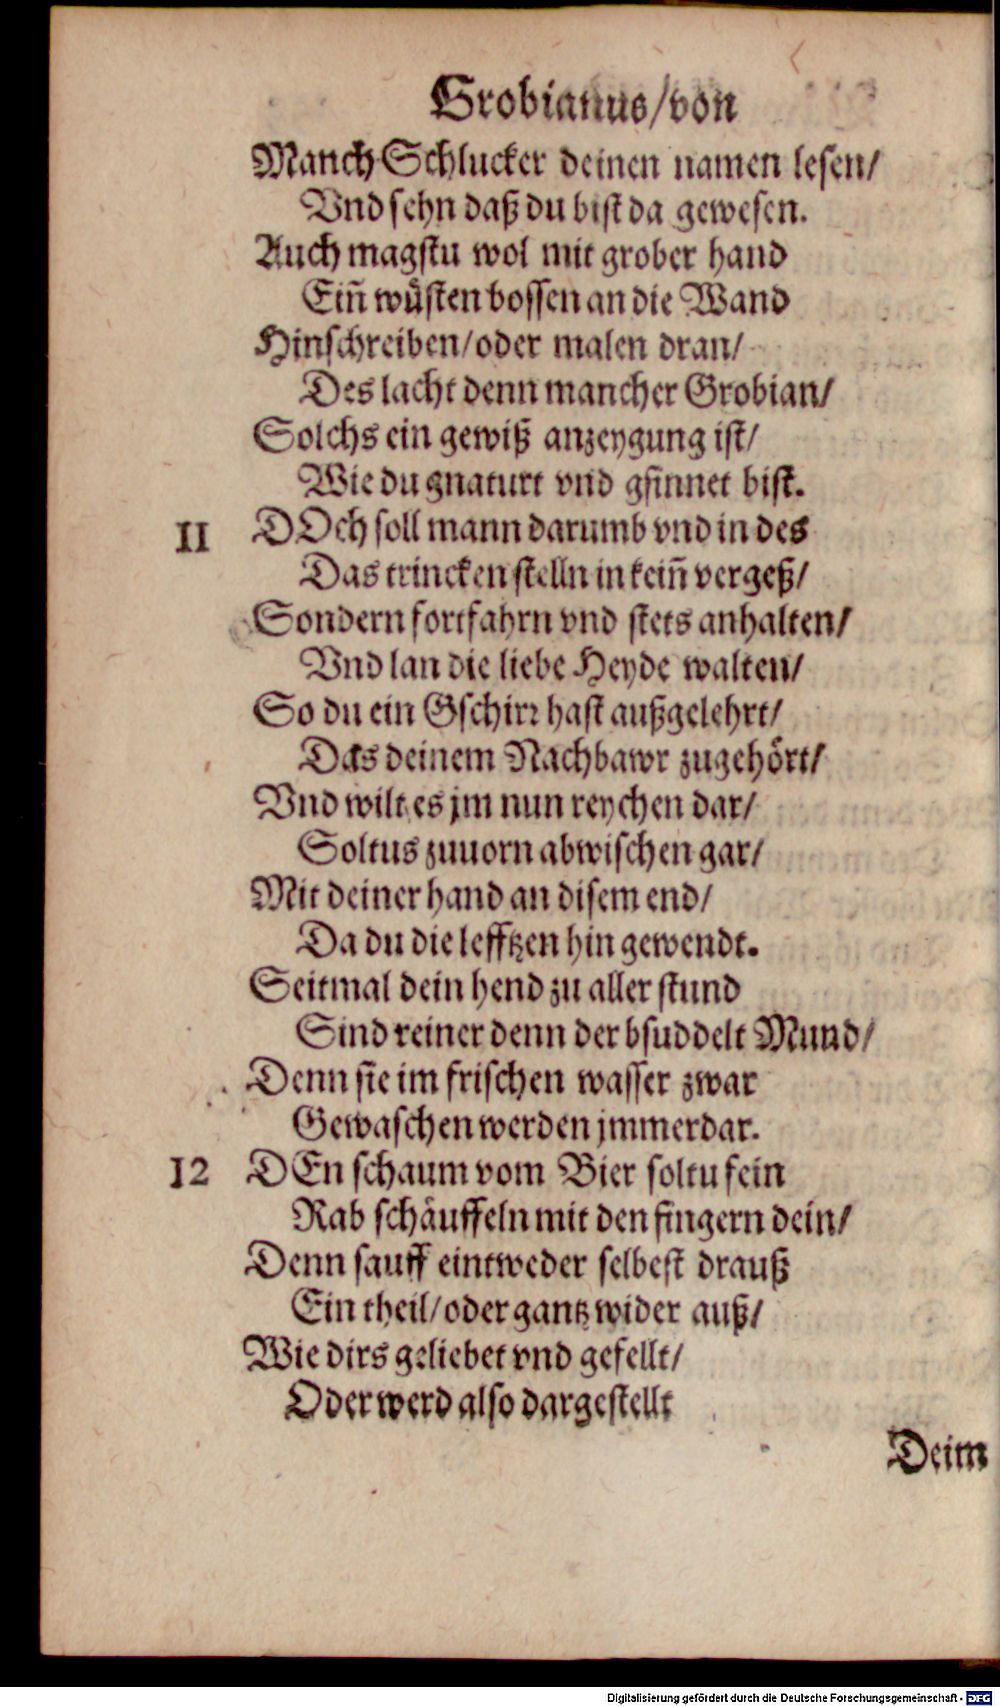 Grobianus/von
Manch Schlucker deinen namen lesen/
Vnd sehn daß du bist da gewesen.
Auch magstu wol mit grober hand
Eiñ wuͤsten bossen an die Wand
Hinschreiben/oder malen dran/
Des lacht denn mancher Grobian/
Solchs ein gewiß anzeygung ist/
Wie du gnaturt vnd gsinnet bist.
11 DOch soll mann darumb vnd in des
Das trincken stelln in keiñ vergeß/
Sondern fortfahrn vnd stets anhalten/
Vnd lan die liebe Heyde walten/
So du ein Gschirr hast außgelehrt/
Das deinem Nachbawr zugehoͤrt/
Vnd wilt es jm nun reychen dar/
Soltus zuuorn abwischen gar/
Mit deiner hand an disem end/
Da du die lefftzen hin gewendt.
Seitmal dein hend zu aller stund
Sind reiner denn der bsuddelt Mund/
Denn sie im frischen wasser zwar
Gewaschen werden jmmerdar.
12 DEn schaum vom Bier soltu fein
Rab schaͤuffeln mit den fingern dein/
Denn sauff eintweder selbest drauß
Ein theil/oder gantz wider auß/
Wie dirs geliebet vnd gefellt/
Oder werd also dargestellt
Deim
Digitalisierung gefördert durch die Deutsche Forschungsgemeinschaft - DFG